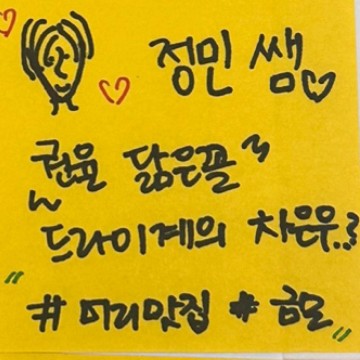 정민 쌤♡
권율 닮은꼴~
드라이계의 차은우..
"# 머리맛집 # 금모"